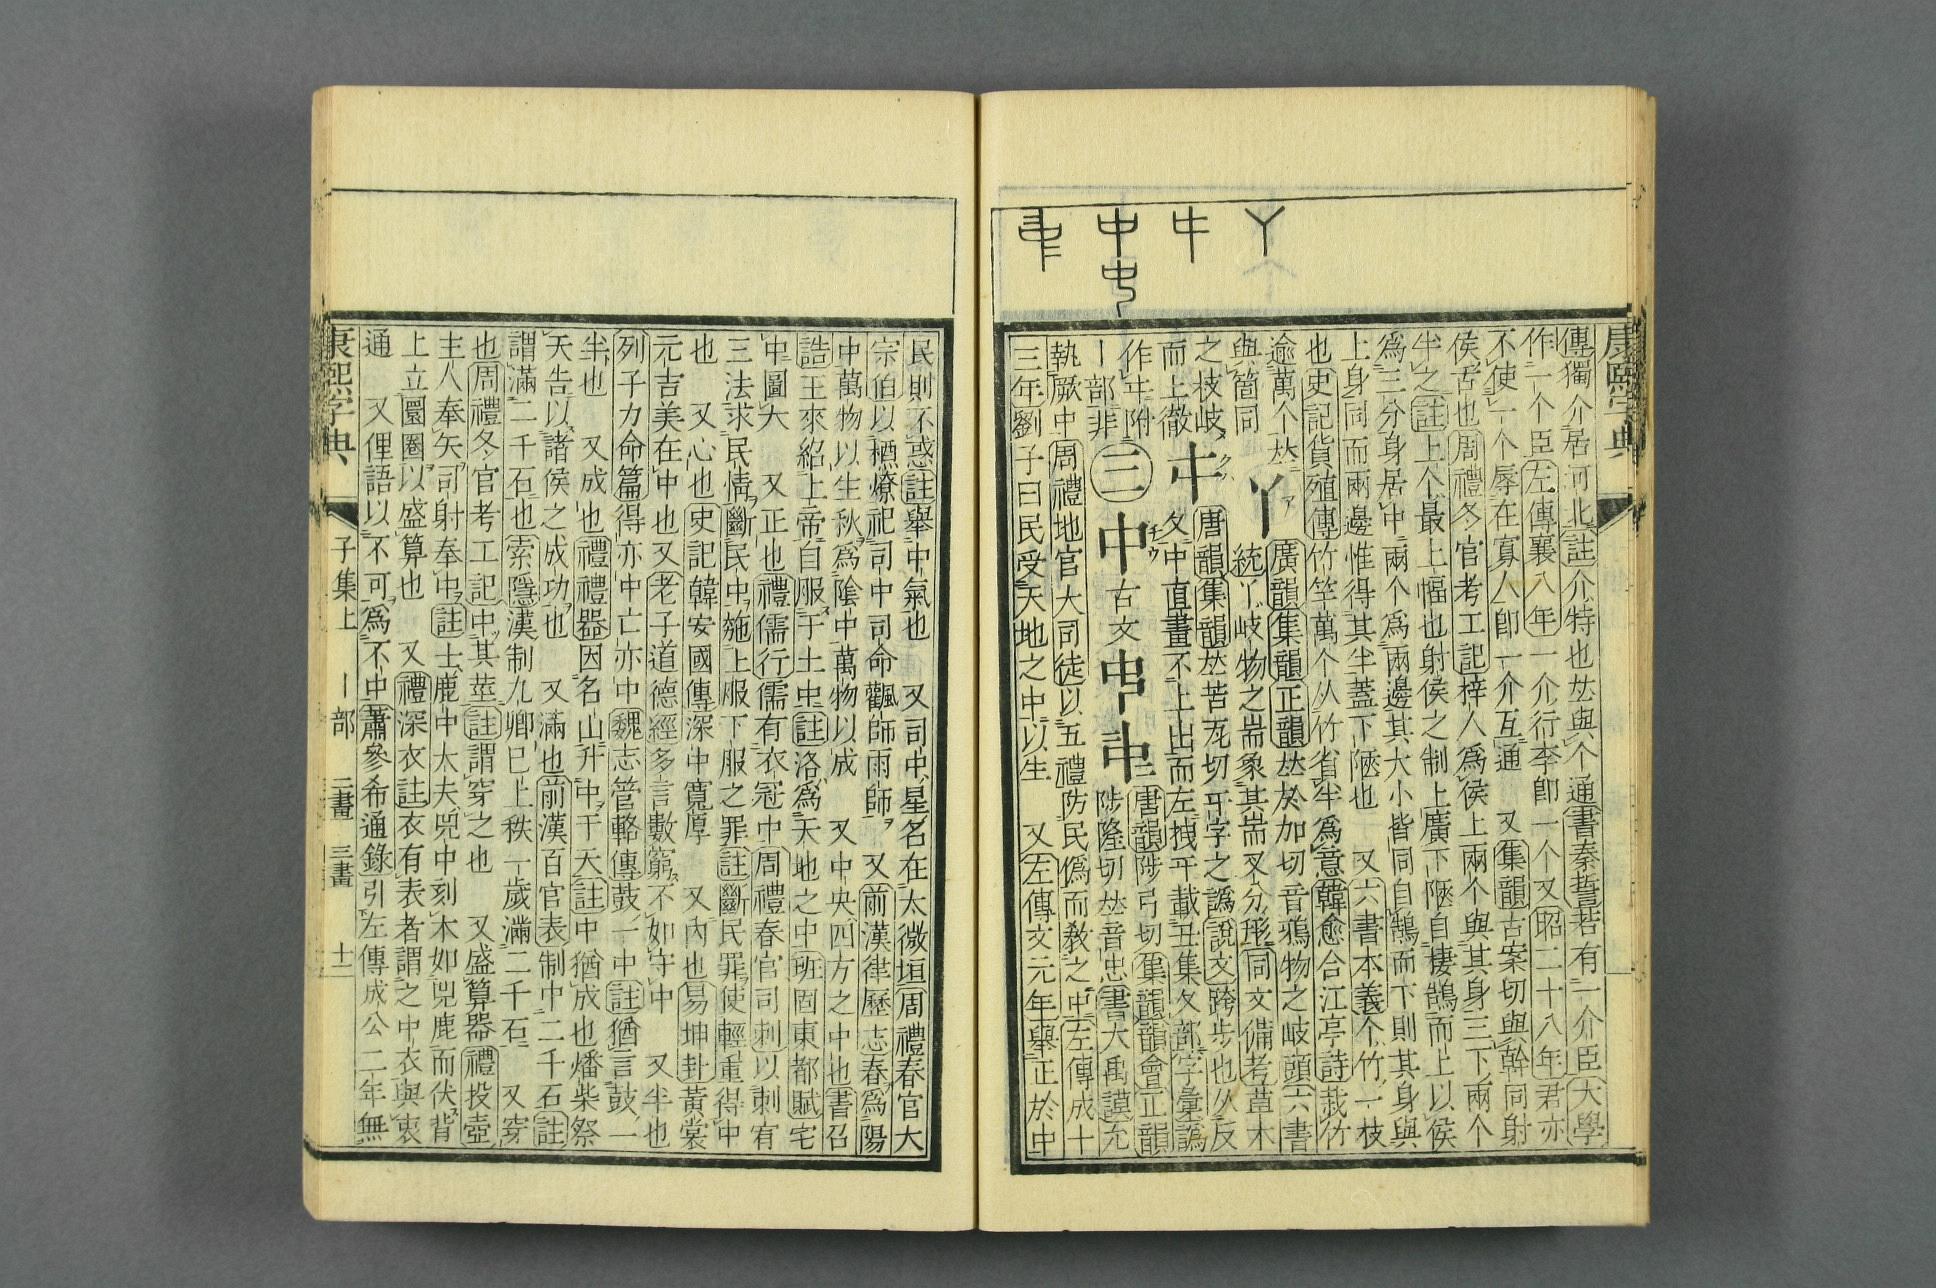 康熙字典
傳獨介居河北註介特也𠀤與个通書秦誓若有一介臣大學
作一个臣左傳襄八年一介行李卽一个又昭二十八年君亦
不使一个辱在寡人卽一介互通 又集韻古案切與幹同射
侯舌也周禮冬官考工記梓人爲侯上兩个與其身三下兩个
半之註上个最上幅也射侯之制上廣下陿自棲鵠而上以侯
爲三分身居中兩个爲兩邊其大小皆同自鵠而下則其身與
上身同而兩邊惟得其半蓋下陿也 又六書本義个竹一枝
也史記貨殖傳竹竿萬个从竹省半爲意韓愈合江亭詩栽竹
逾萬个𠀤
與箇同
丫
廣韻集韻正韻𠀤於加切音鴉物之岐頭六書
統丫岐物之耑象其耑叉分形同文備考葢木
之枝岐
而上徹
𠀁
唐韻集韻𠀤苦瓦切干字之譌說文跨步也从反
夂中直畫不上出而左拽干載丑集夂部字彙譌
作㐄附
丨部非
三
中
古文
𠁧
𠁩
唐韻陟弓切集韻韻會正韻
陟隆切𠀤音忠書大禹謨允
執厥中周禮地官大司徒以五禮防民僞而敎之中左傳成十
三年劉子曰民受天地之中以生 又左傳文元年舉正於中
民則不惑註舉中氣也 又司中星名在太微垣周禮春官大
宗伯以槱燎祀司中司命飌師雨師 又前漢律歷志春爲陽
中萬物以生秋爲陰中萬物以成 又中央四方之中也書召
誥王來紹上帝自服于土中註洛爲天地之中班固東都賦宅
中圖大 又正也禮儒行儒有衣冠中周禮春官司刺以刺宥
三法求民情斷民中施上服下服之罪註斷民罪使輕重得中
也 又心也史記韓安國傳深中寬厚 又內也易坤卦黃裳
元吉美在中也又老子道德經多言數窮不如守中 又半也
列子力命篇得亦中亡亦中魏志管輅傳鼓一中註猶言鼓一
半也 又成也禮禮器因名山升中于天註中猶成也燔柴祭
天告以諸侯之成功也 又滿也前漢百官表制中二千石註
謂滿二千石也索隱漢制九卿已上秩一歲滿二千石 又穿
也周禮冬官考工記中其莖註謂穿之也 又盛算器禮投壺
主人奉矢司射奉中註士鹿中太夫兕中刻木如兕鹿而伏背
上立圜圈以盛算也 又禮深衣註衣有表者謂之中衣與衷
通 又俚語以不可爲不中蕭參希通錄引左傳成公二年無
康熙字典 子集上 丨部 二畫 三畫 十二